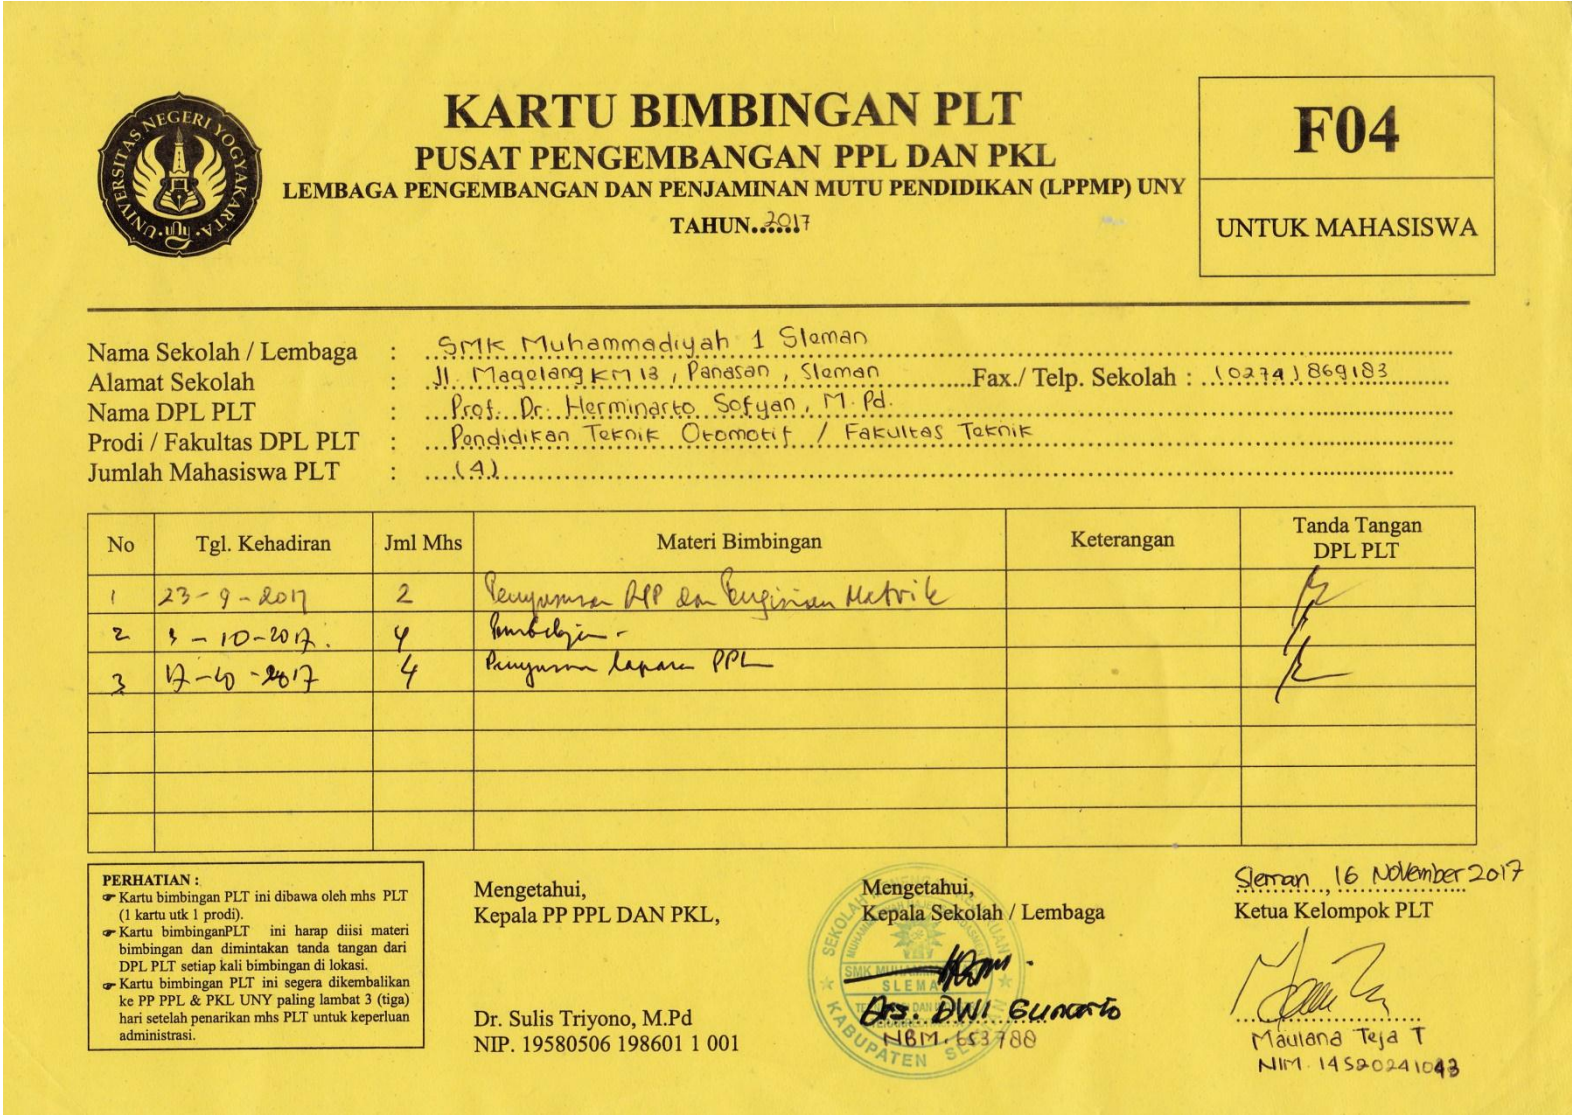 UNIVERSITAS NEGERI YOGYAKARTA
KARTU BIMBINGAN PLT
PUSAT PENGEMBANGAN PPL DAN PKL
LEMBAGA PENGEMBANGAN DAN PENJAMINAN MUTU PENDIDIKAN (LPPMP) UNY
TAHUN.2017
F04
UNTUK MAHASISWA
Nama Sekolah / Lembaga : SMK Muhammadiyah 1 Sleman
Alamat Sekolah : Jl. Magelang KM 13, Panasan, Sleman Fax./ Telp. Sekolah : (0274) 869183
Nama DPL PLT : Prof. Dr. Herminarto Sofyan, M.Pd.
Prodi / Fakultas DPL PLT : Pendidikan Teknik Otomotif / Fakultas Teknik
Jumlah Mahasiswa PLT : (4)
No Tgl. Kehadiran Jml Mhs Materi Bimbingan Keterangan Tanda Tangan DPL PLT
1 23-9-2017 2 Penyusunan RPP dan Pengisian Matrik
2 3-10-2017. 4
3 17-10-2017 4 Penyusunan laporan PPL
PERHATIAN :
Kartu bimbingan PLT ini dibawa oleh mhs PLT
(1 kartu utk 1 prodi).
Kartu bimbinganPLT ini harap diisi materi
bimbingan dan dimintakan tanda tangan dari
DPL PLT setiap kali bimbingan di lokasi.
Kartu bimbingan PLT ini segera dikembalikan
ke PP PPL & PKL UNY paling lambat 3 (tiga)
hari setelah penarikan mhs PLT untuk keperluan
administrasi.
Mengetahui,
Kepala PP PPL DAN PKL,
Dr. Sulis Triyono, M.Pd
NIP. 19580506 198601 1 001
Mengetahui,
Kepala Sekolah / Lembaga
SMK MUHAMMADIYAH
SLEMAN
KABUPATEN SLEMAN
Drs. DWI Gunarto
NBM. 653788
Sleman, 16 November 2017
Ketua Kelompok PLT
Maulana Teja T
NIM. 14520241043